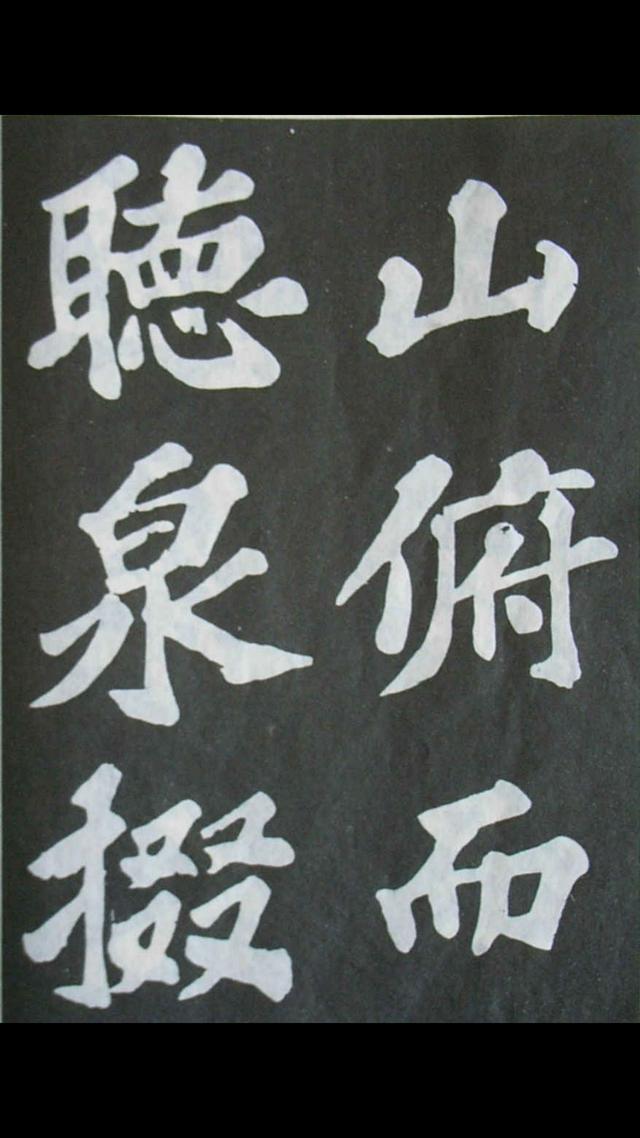 山俯而
聽泉掇